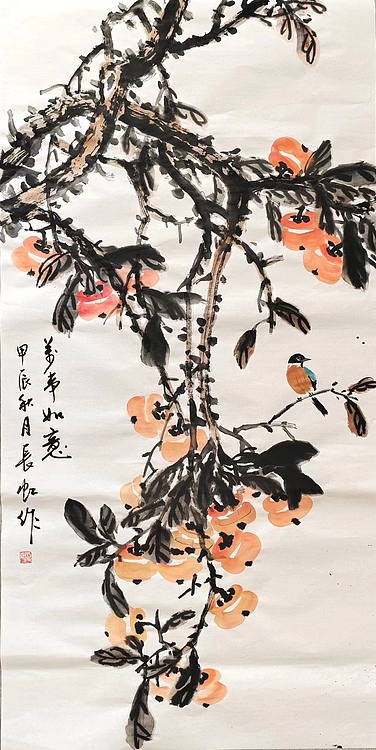 万事如意
甲辰秋月長虹作